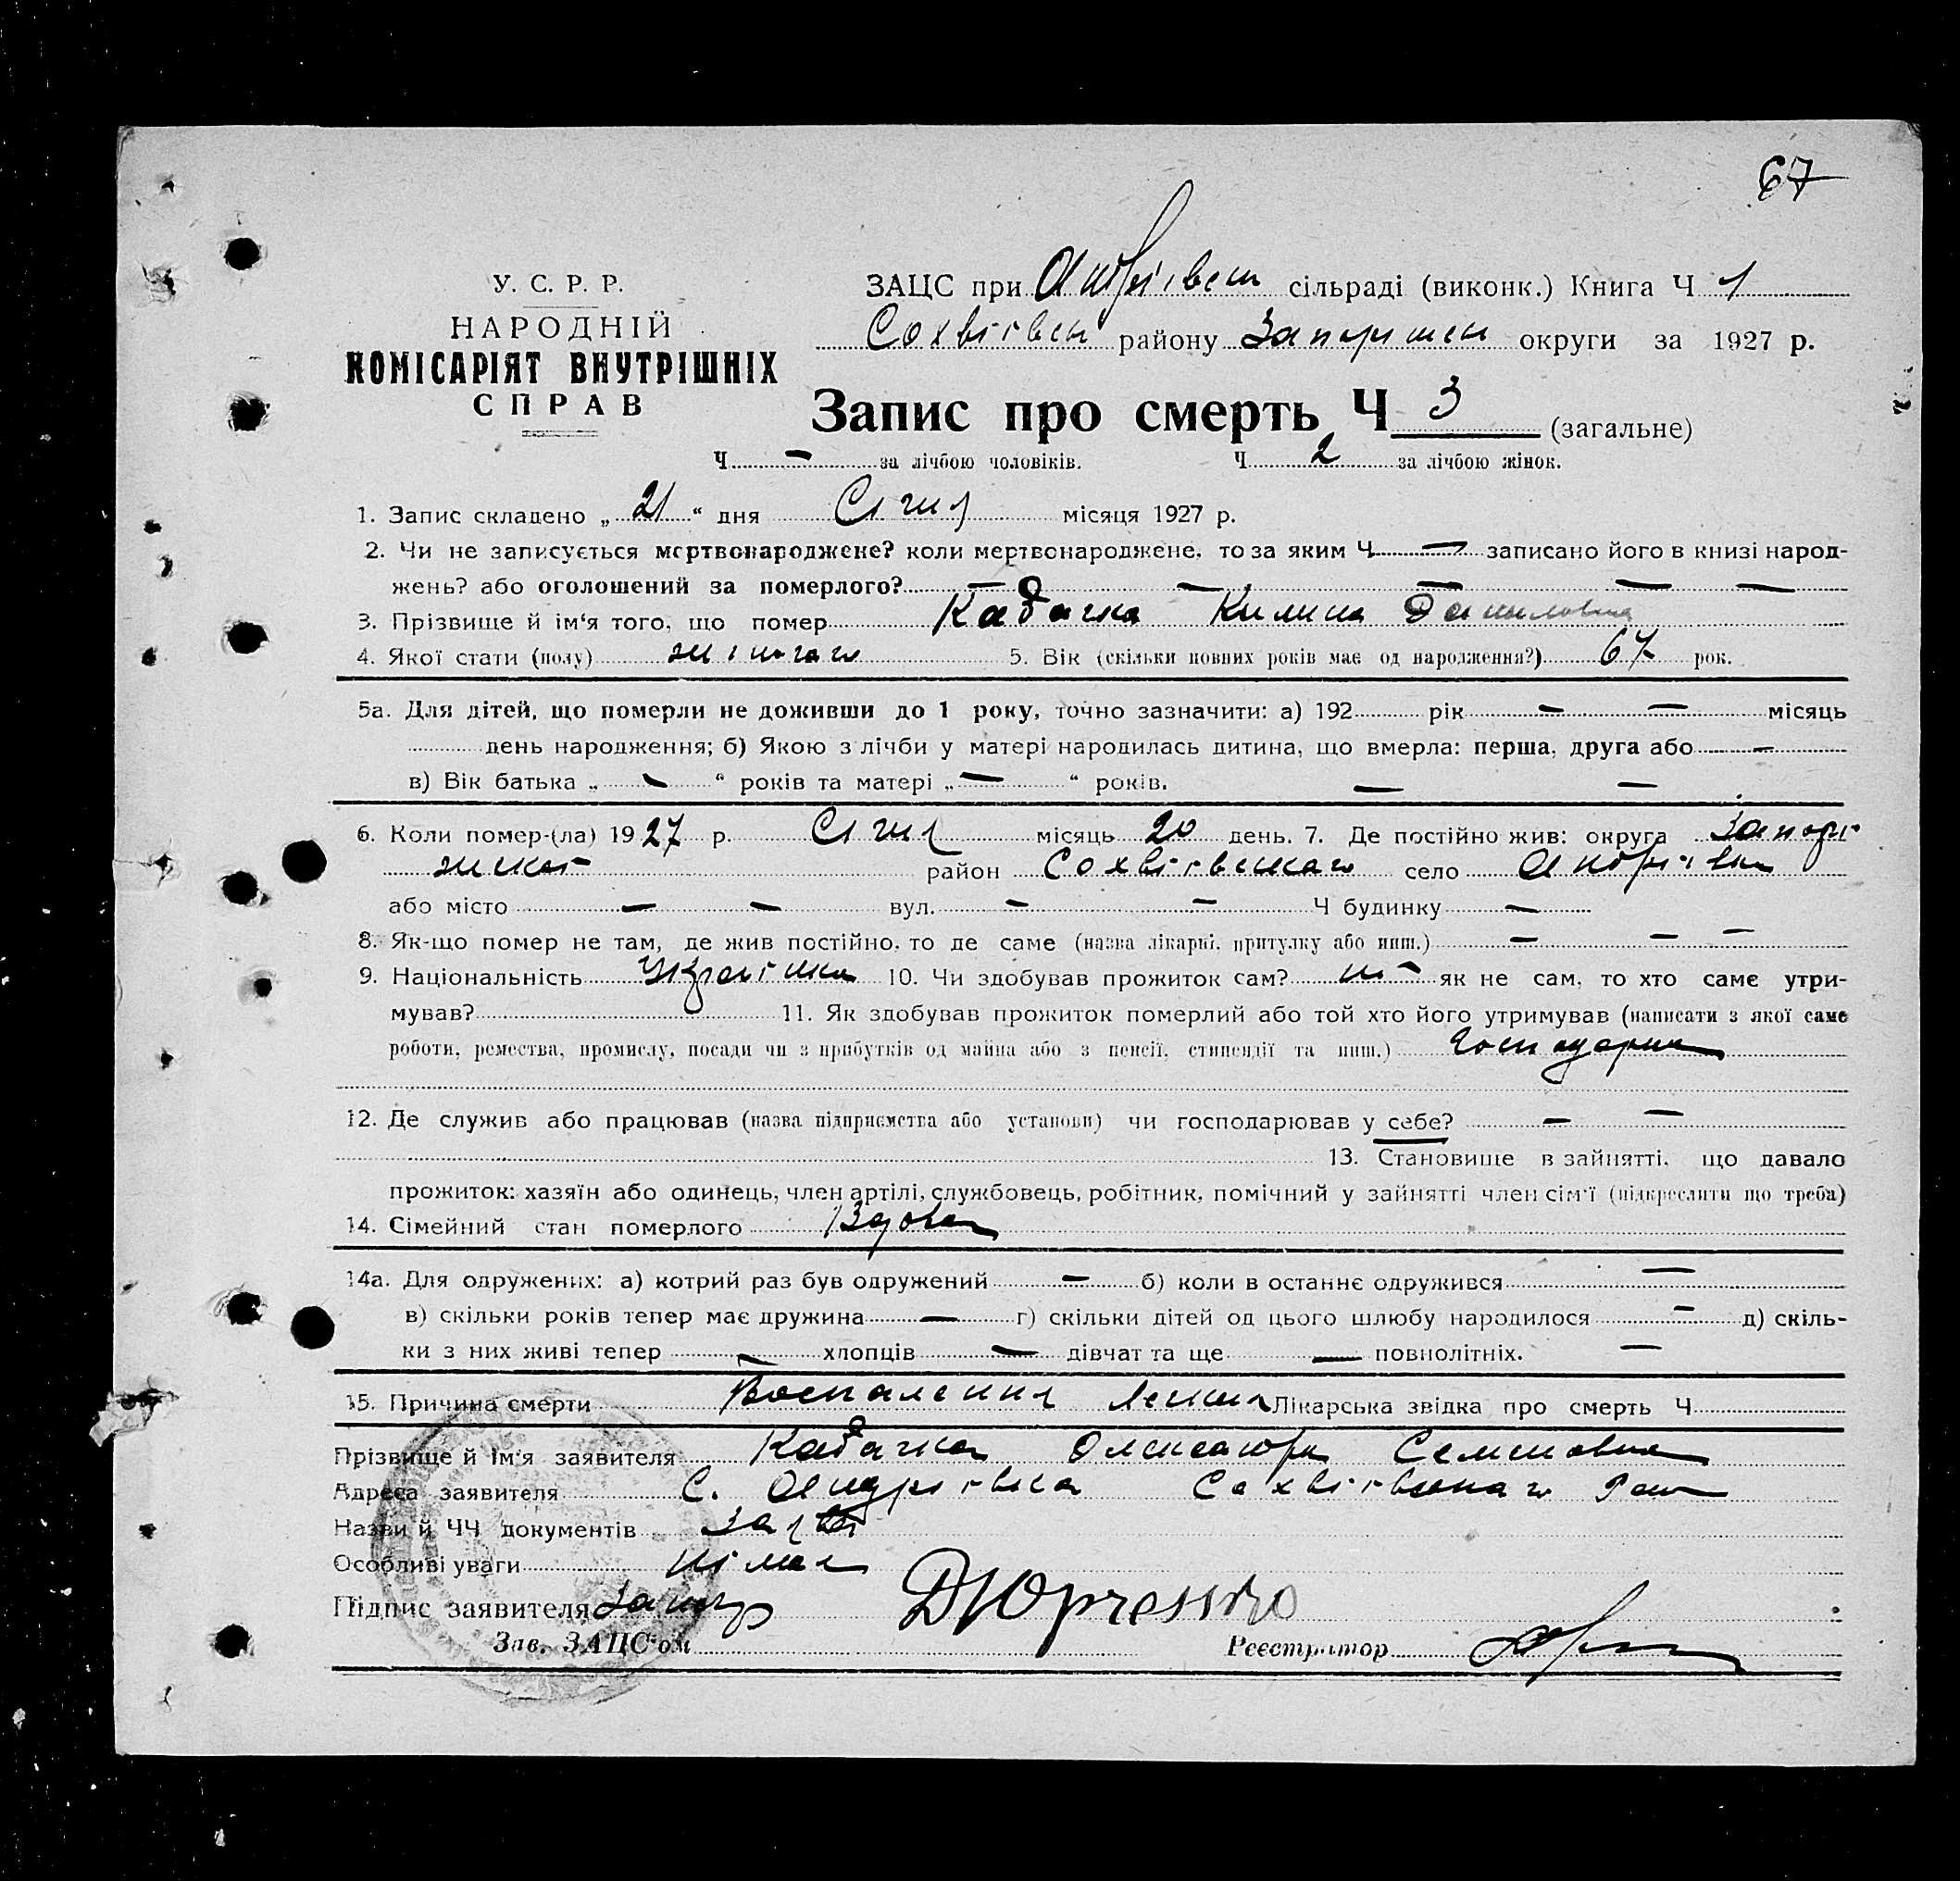 67
У. С. Р. Р.
НАРОДНІЙ
КОМІСАРІЯТ ВНУТРІШНІХ
СПРАВ
ЗАЦС при Андріївськ сільраді (виконк.) Книга Ч 1
Сохвіївськ району Запоріжськ округи за 1927 р.
Запис про смерть Ч 3 (загальне)
Ч — за лічбою чоловіків. Ч 2 за лічбою жінок.
1. Запис складено „ 21 “ дня Січня місяця 1927 р.
2. Чи не записується мертвонароджене? коли мертвонароджене, то за яким Ч — записано його в книзі народ-
жень? або оголошений за померлого? — — — — —
3. Прізвище й ім'я того, що помер Кабачка Килина Даниловна
4. Якої стати (полу) жіночого 5. Вік (скільки повних років має од народження?) 67 рок.
5а. Для дітей, що померли не доживши до 1 року, точно зазначити: а) 192 рік — — місяць
день народження; б) Якою з лічби у матері народилась дитина, що вмерла: перша, друга або —
в) Вік батька „ — “ років та матері „ — “ років. — —
6. Коли помер-(ла) 1927 р. Січня місяць 20 день. 7. Де постійно жив: округа Запорі-
жської район Сохвіївського село Андріївка
або місто — — вул. — — Ч будинку —
8. Як-що помер не там, де жив постійно, то де саме (назва лікарні, притулку або инш.) — — —
9. Національність Українка 10. Чи здобував прожиток сам? ні як не сам, то хто саме утри-
мував? 11. Як здобував прожиток померлий або той хто його утримував (написати з якої саме
роботи, ремества, промислу, посади чи з прибутків од майна або з пенсії, стипендії та инш.)
12. Де служив або працював (назва підприємства або установи) чи господарював у себе? — —
13. Становище в зайнятті, що давало
прожиток: хазяїн або одинець, член артілі, службовець, робітник, помічний у зайнятті член сім'ї (підкреслити що треба)
14. Сімейний стан померлого Вдова
14а. Для одружених: а) котрий раз був одружений — б) коли в останнє одружився —
в) скільки років тепер має дружина — г) скільки дітей од цього шлюбу народилося — д) скіль-
ки з них живі тепер — хлопців — дівчат та ще — повнолітніх. —
15. Причина смерти Воспаления легких Лікарська звідка про смерть Ч
Прізвище й Ім'я заявителя Кабачка Олександра Семеновна
Адреса заявителя С. Андріївка Сохвіївського Рай
Назви й ЧЧ документів
Особливі уваги німає
Підпис заявителя
Зав. ЗАЦС'ом Реєстратор